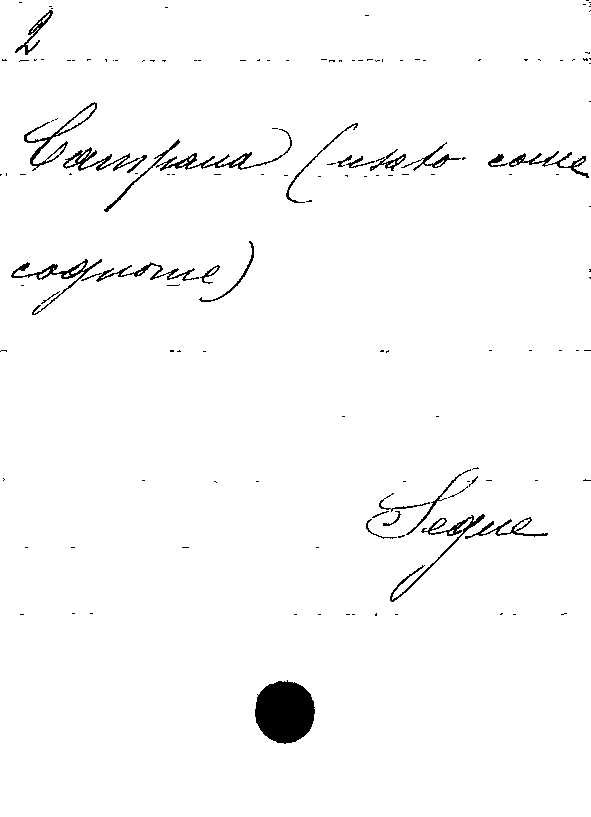 2
Campana (usato come
cognome)
Segue